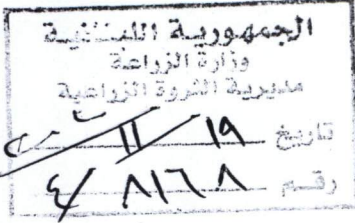 الجمهورية اللبنانية
وزارة الزراعة
مديرية الثروة الزراعية
تاريخ ١٩ / ١١ /
رقم ٨١٦٨ / ٤